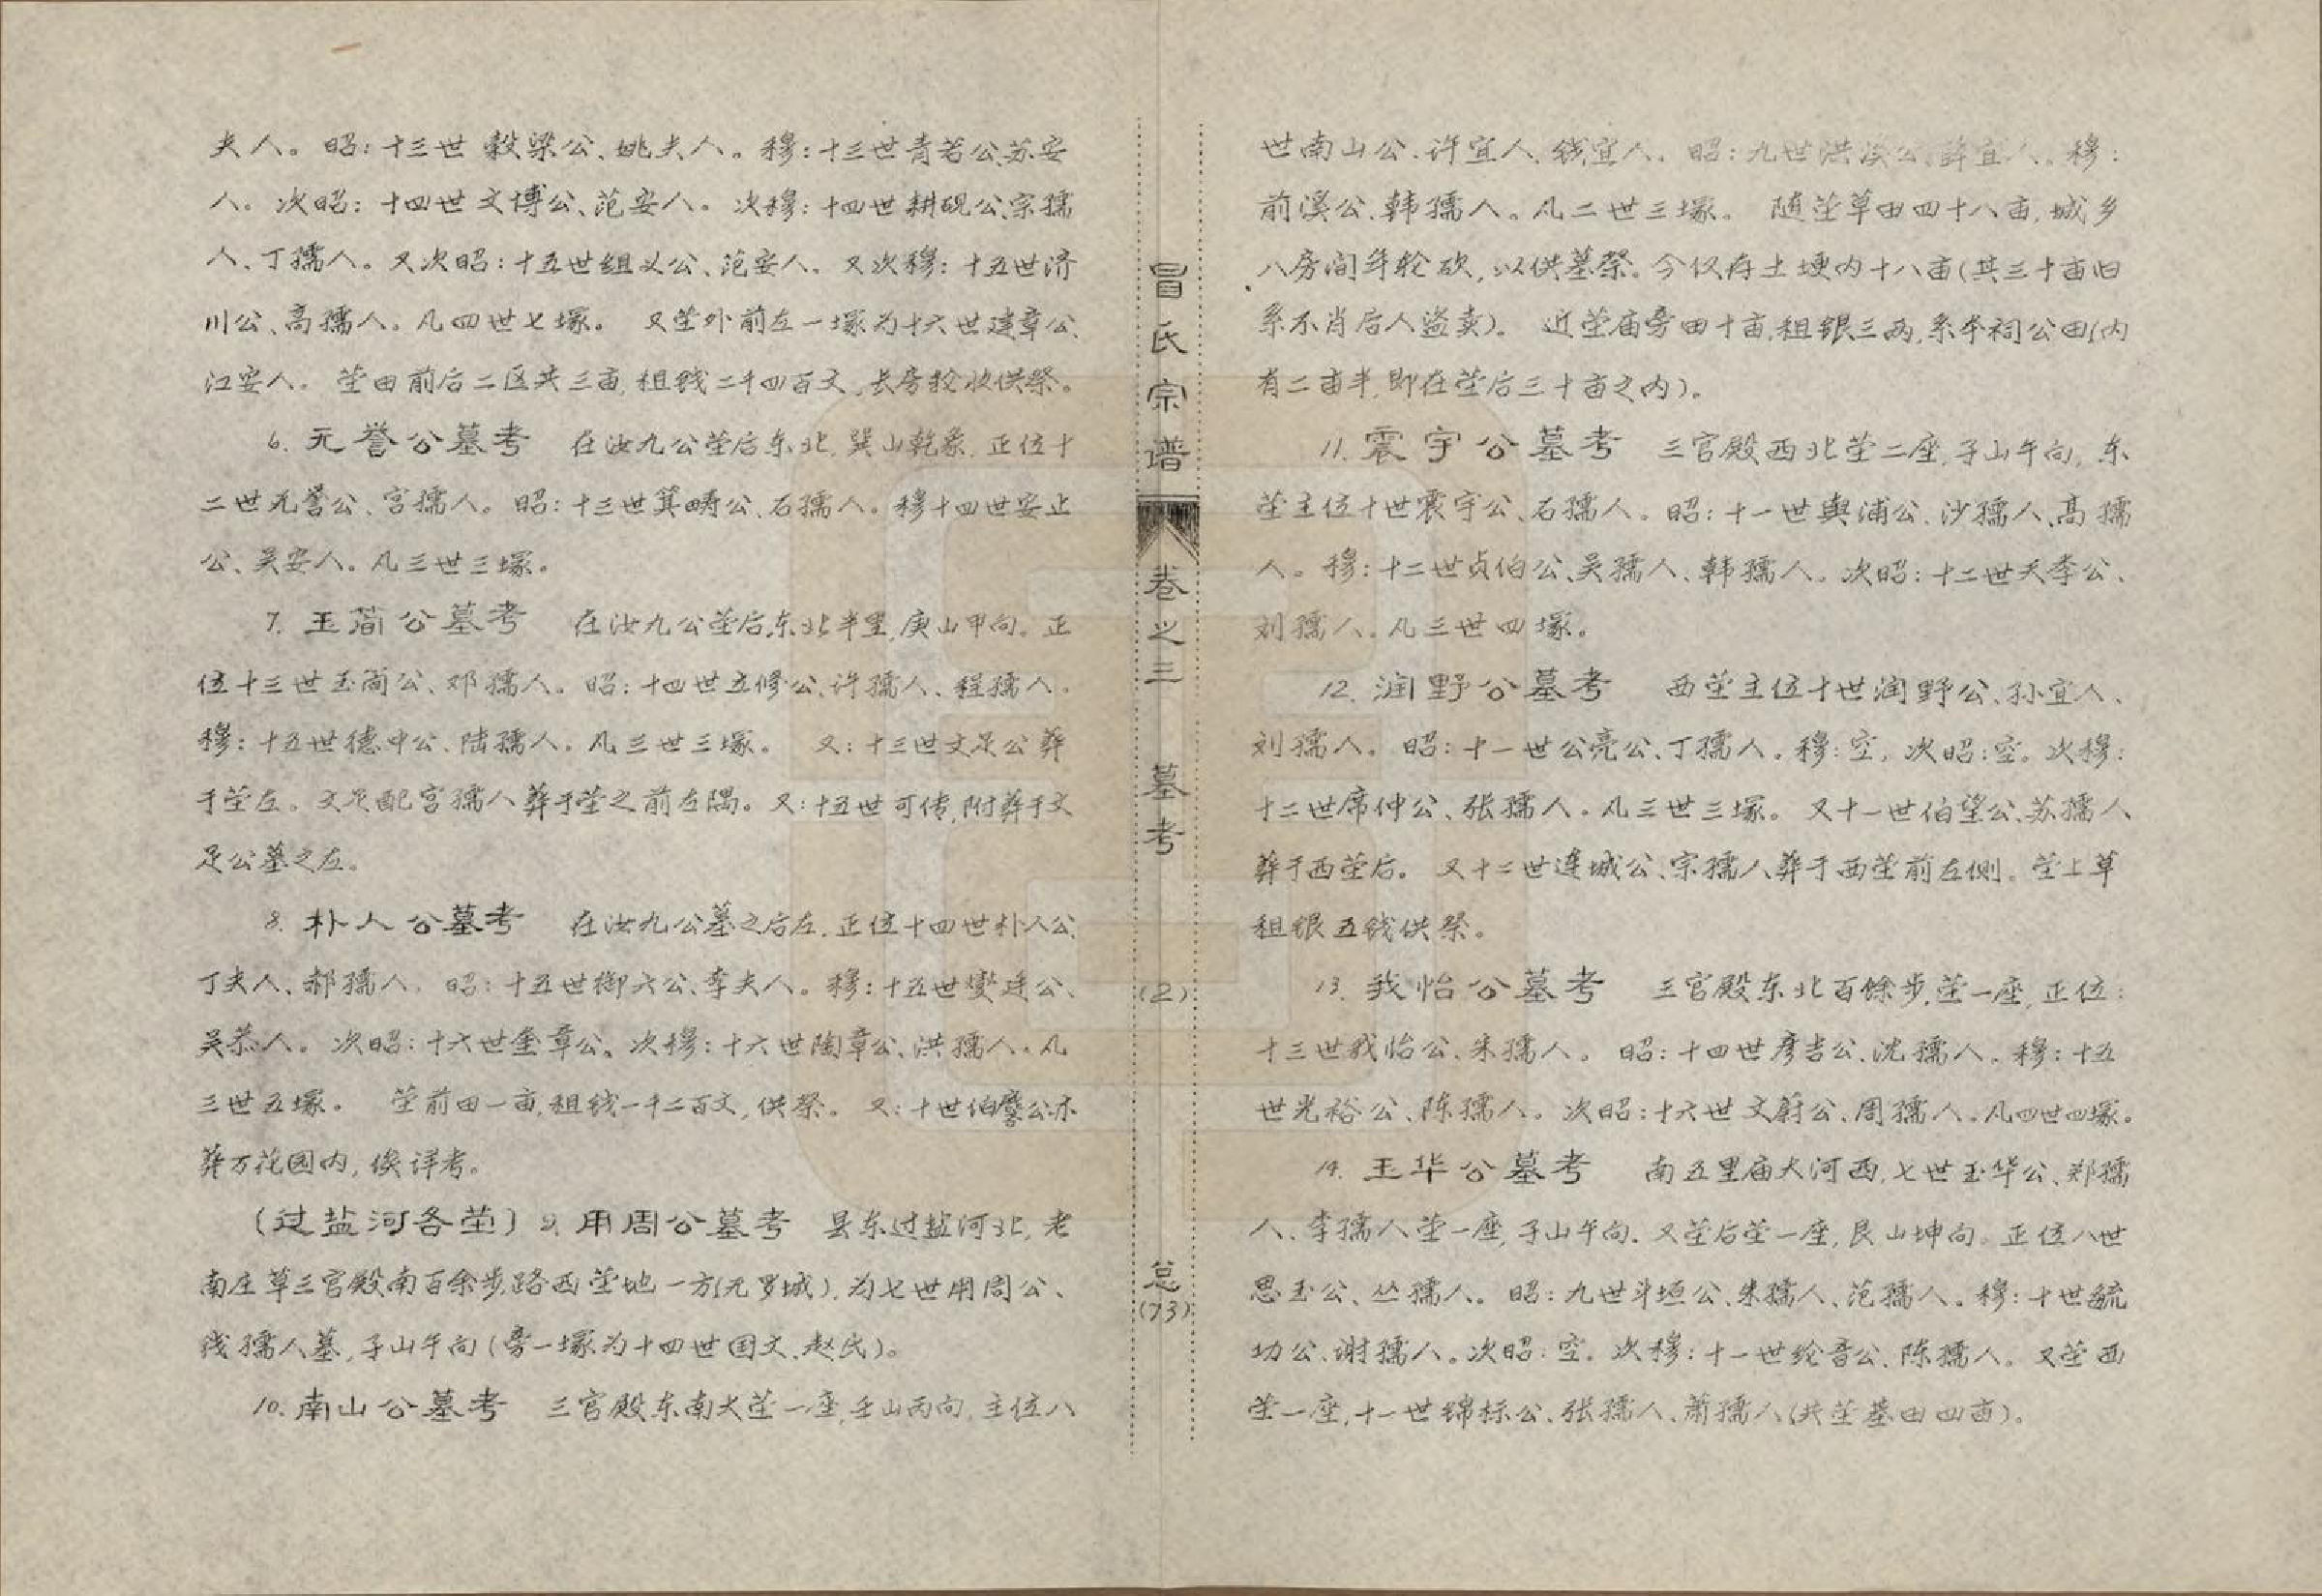 夫人。昭：十三世穀梁公、姚夫人。穆：十三世青若公、苏安
人。次昭：十四世文博公、范安人。次穆：十四世耕砚公、宗孺
人、丁孺人。又次昭：十五世组义公、范安人。又次穆：十五世济
川公、高孺人。凡四世七塚。 又茔外前左一塚为十六世建章公、
江安人。 茔田前后二区共三亩,租钱二千四百文,长房轮收供祭。
6. 元誉公墓考 在汝九公茔后东北,巽山乾象,正位十
二世元誉公、宫孺人。昭：十三世箕畴公、石孺人。穆十四世安止
公、吴安人。凡三世三塚。
7. 玉简公墓考 在汝九公茔后,东北半里,庚山甲向。正
位十三世玉简公、邓孺人。昭：十四世立修公、许孺人、程孺人。
穆：十五世德中公、陆孺人。凡三世三塚。 又：十三世文足公葬
于茔左。文足配宫孺人葬于茔之前左隅。又：十五世可传,附葬于文
足公墓之左。
8. 朴人公墓考 在汝九公墓之后左,正位十四世朴人公、
丁夫人、郝孺人。昭：十五世御六公、李夫人。穆：十五世燮廷公、
吴恭人。次昭：十六世奎章公。次穆：十六世陶章公、洪孺人。凡
三世五塚。 茔前田一亩,租钱一千二百文,供祭。 又：十世伯麐公亦
葬万花园内,俟详考。
(过盐河各茔) 9. 用周公墓考 县东过盐河北,老
南庄草三官殿南百余步,路西茔地一方(元罗城),为七世用周公、
钱孺人墓,子山午向(旁一塚为十四世国文、赵氏)。
10. 南山公墓考 三官殿东南大茔一座,壬山丙向,主位八
冒氏宗谱
卷之三 墓考
(2)
总(73)
世南山公、许宜人、钱宜人。昭：九世洪溪公、薛宜人。穆：
前溪公、韩孺人。凡二世三塚。 随茔草田四十八亩,城乡
八房间年轮砍,以供墓祭。今仅存土埂内十八亩(其三十亩旧
系不肖后人盗卖)。 近茔庙旁田十亩,租银三两,系本祠公田(内
有二亩半,即在茔后三十亩之内)。
11. 震宇公墓考 三官殿西北茔二座,子山午向,东
茔主位十世震宇公、石孺人。昭：十一世舆浦公、沙孺人、高孺
人。穆：十二世贞伯公、吴孺人、韩孺人。次昭：十二世天季公、
刘孺人。凡三世四塚。
12. 润野公墓考 西茔主位十世润野公、孙宜人、
刘孺人。昭：十一世公亮公、丁孺人。穆：空。次昭：空。次穆：
十二世席仲公、张孺人。凡三世三塚。又十一世伯望公、苏孺人
葬于西茔后。 又十二世连城公、宗孺人葬于西茔前左侧。茔上草
租银五钱供祭。
13. 我怡公墓考 三官殿东北百馀步,茔一座,正位：
十三世我怡公、朱孺人。 昭：十四世彦吉公、沈孺人。穆：十五
世光裕公、陈孺人。次昭：十六世文蔚公、周孺人。凡四世四塚。
14. 玉华公墓考 南五里庙大河西,七世玉华公、郑孺
人、李孺人茔一座,子山午向。又茔后茔一座,艮山坤向。正位八世
思玉公、丛孺人。昭：九世斗垣公、朱孺人、范孺人。穆：十世毓
功公、谢孺人。次昭：空。次穆：十一世纶音公、陈孺人。又茔西
茔一座,十一世锦标公、张孺人、萧孺人(共茔基田四亩)。